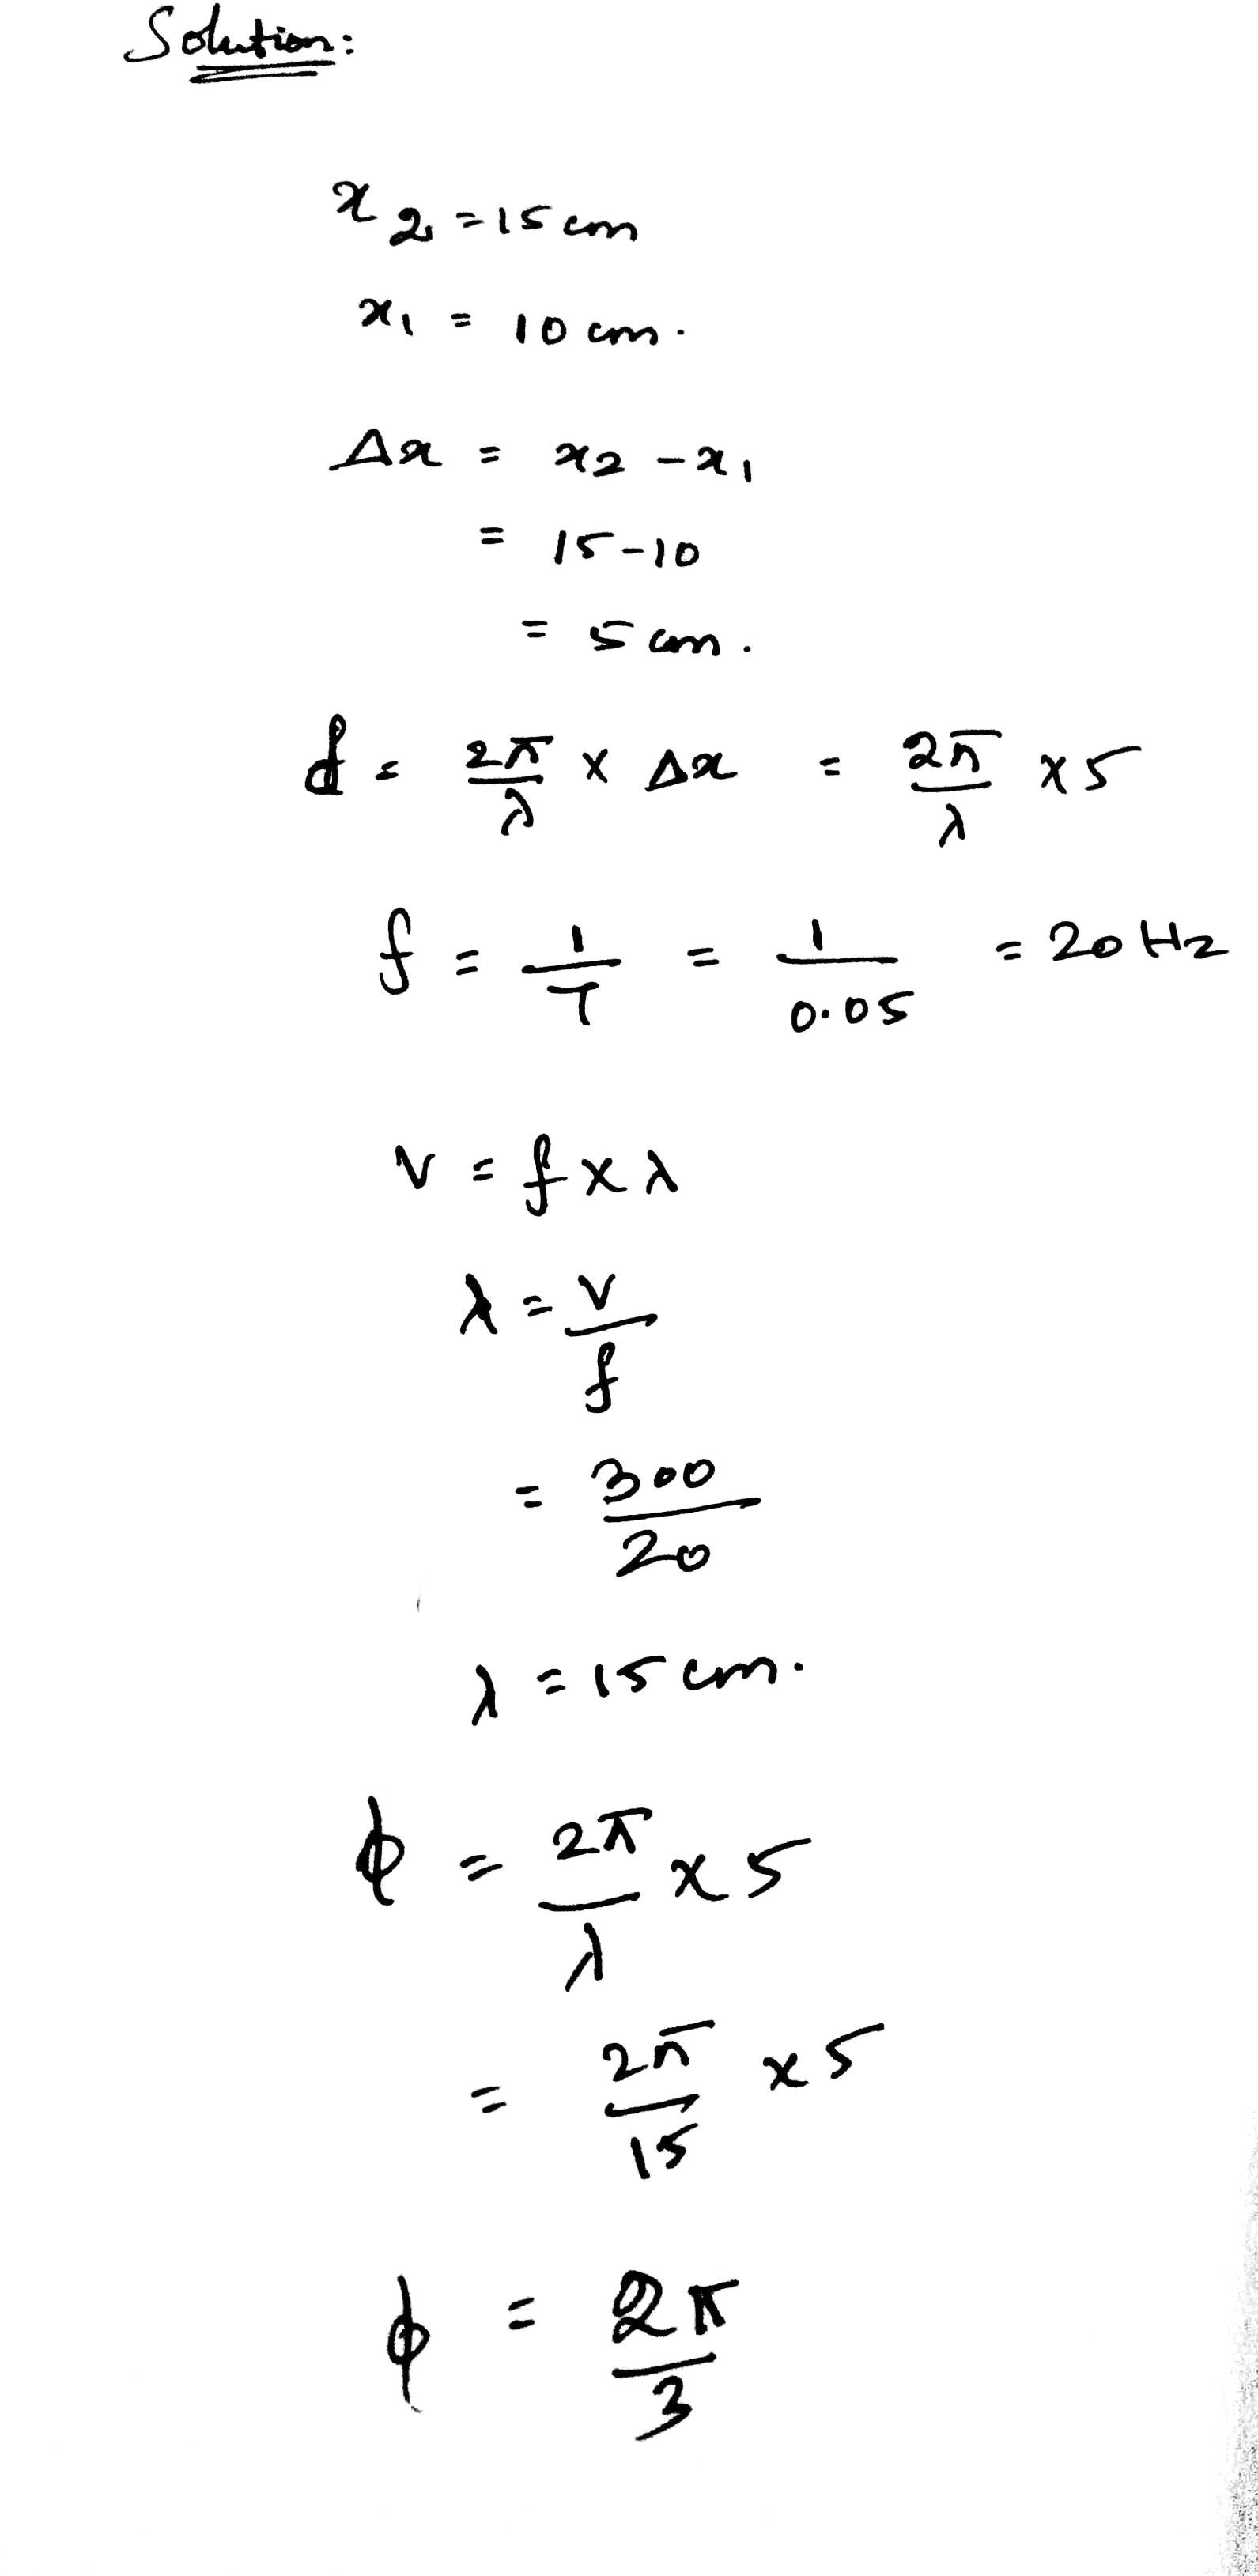 Solution:
x2 = 15 cm
x1 = 10 cm.
Δx = x2 - x1
= 15-10
= 5 cm.
ϕ = 2π/λ × Δx = 2π/λ × 5
f = 1/T = 1/0.05 = 20 Hz
v = f × λ
λ = v/f
= 300/20
λ = 15 cm.
ϕ = 2π/λ × 5
= 2π/15 × 5
ϕ = 2π/3